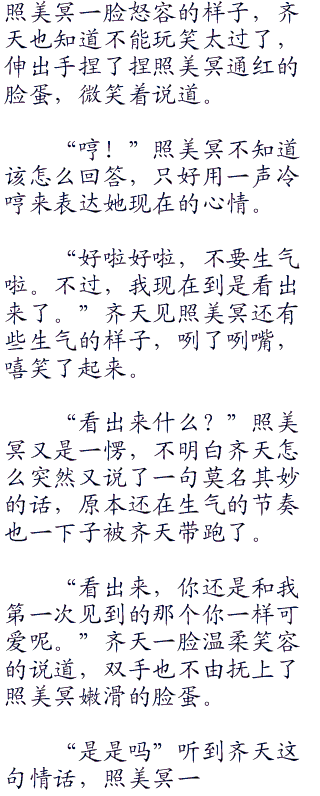 照美冥一脸怒容的样子，齐
天也知道不能玩笑太过了，
伸出手捏了捏照美冥通红的
脸蛋，微笑着说道。
“哼！”照美冥不知道
该怎么回答，只好用一声冷
哼来表达她现在的心情。
“好啦好啦，不要生气
啦。不过，我现在到是看出
来了。”齐天见照美冥还有
些生气的样子，咧了咧嘴，
嘻笑了起来。
“看出来什么？”照美
冥又是一愣，不明白齐天怎
么突然又说了一句莫名其妙
的话，原本还在生气的节奏
也一下子被齐天带跑了。
“看出来，你还是和我
第一次见到的那个你一样可
爱呢。”齐天一脸温柔笑容
的说道，双手也不由抚上了
照美冥嫩滑的脸蛋。
“是是吗”听到齐天这
句情话，照美冥一